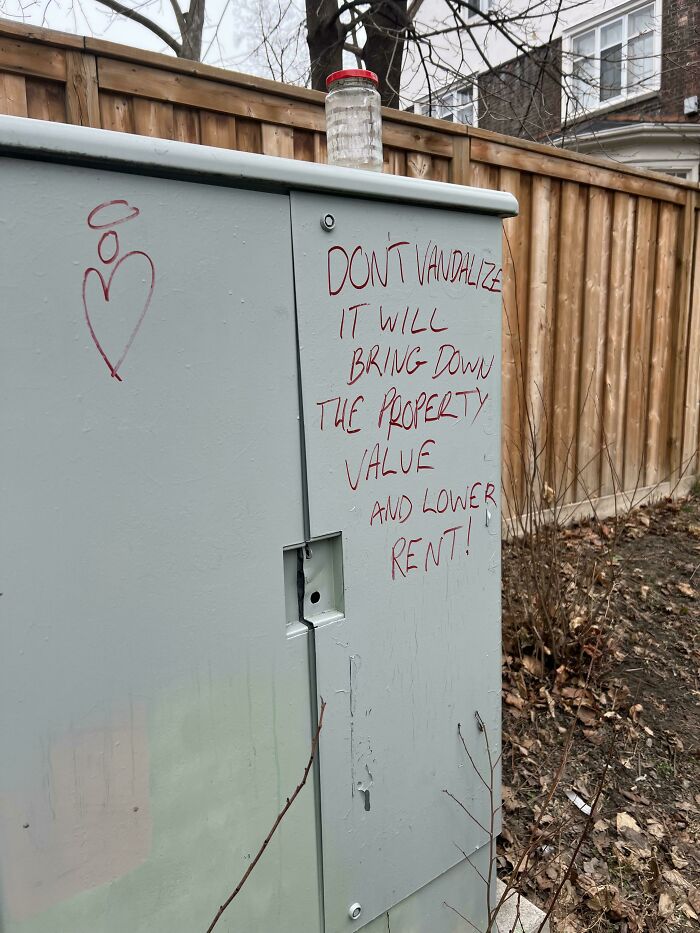 DON'T VANDALIZE
IT WILL
BRING DOWN
THE PROPERTY
VALUE
AND LOWER
RENT!